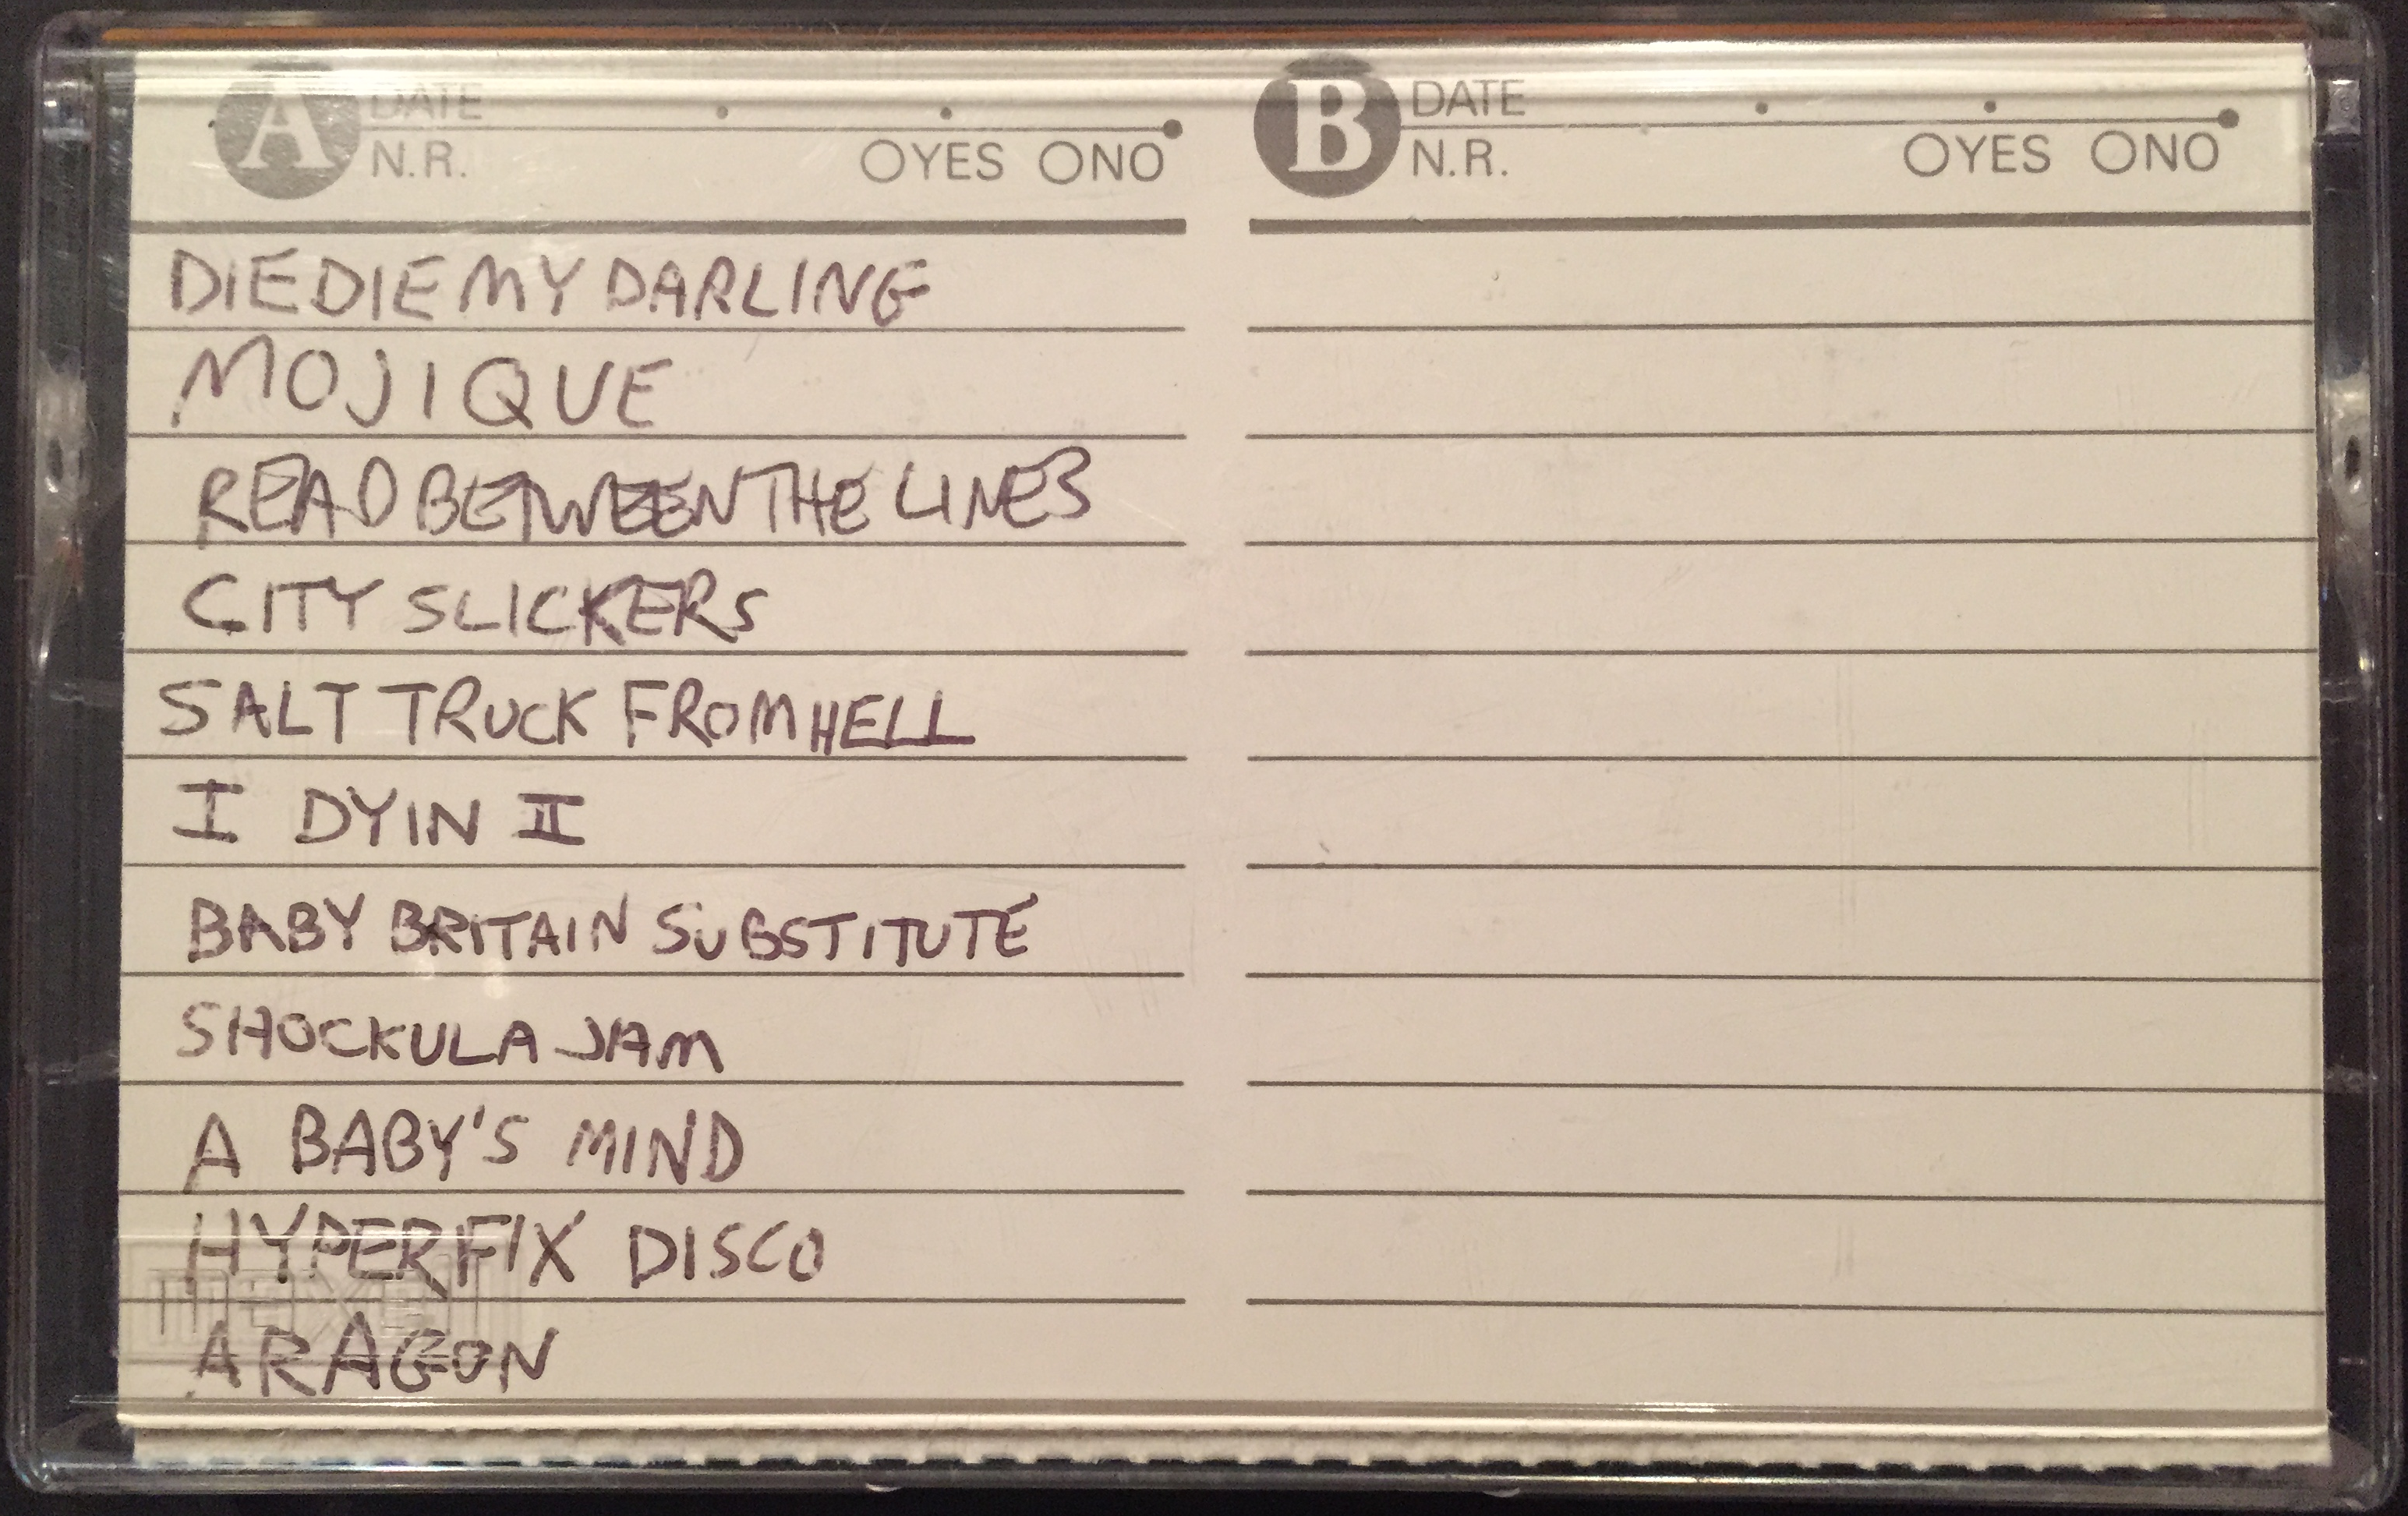 A DATE
N.R. YES NO
B DATE
N.R. YES NO
DIE DIE MY DARLING
MOJIQUE
READ BETWEEN THE LINES
CITY SLICKERS
SALT TRUCK FROM HELL
I DYIN II
BABY BRITAIN SUBSTITUTE
SHOCKULA JAM
A BABY'S MIND
HYPERFIX DISCO
maxell
ARAGON